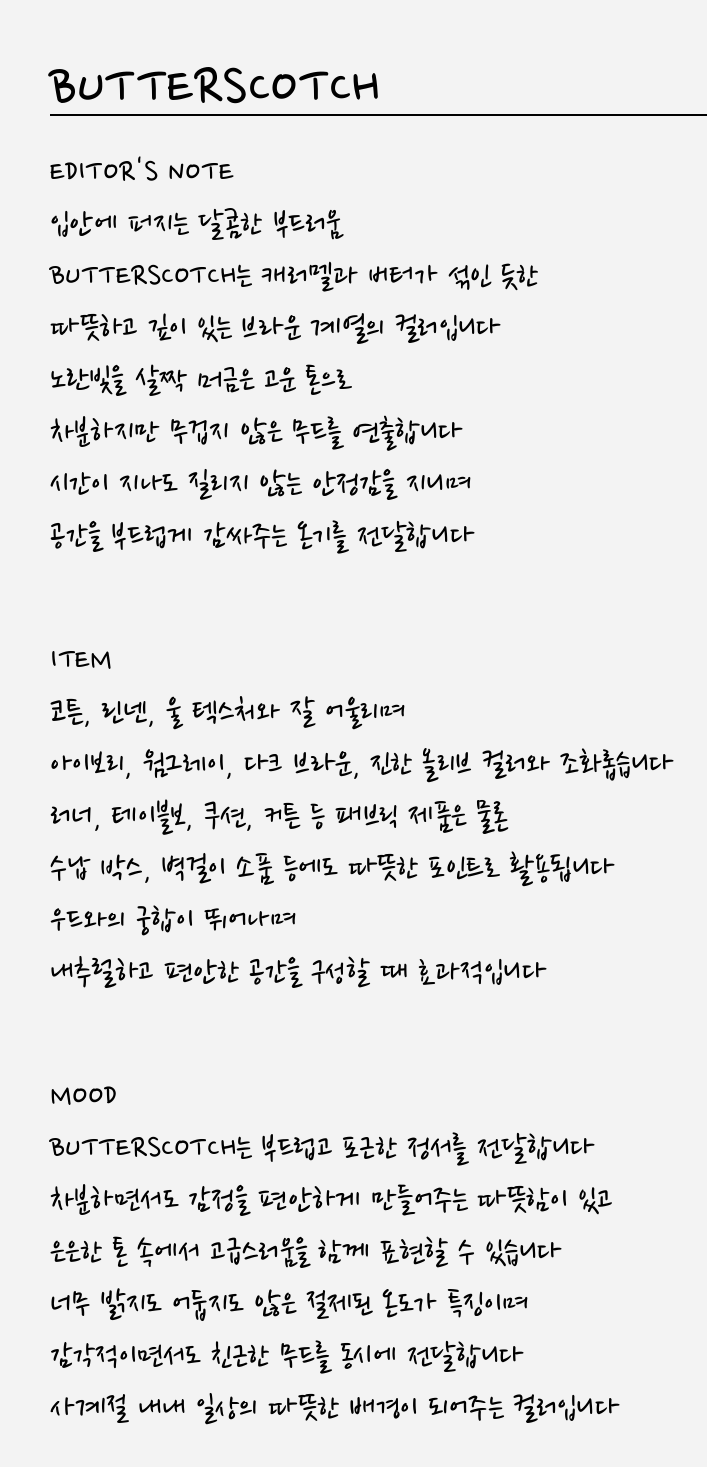 BUTTERSCOTCH
EDITOR'S NOTE
입안에 퍼지는 달콤한 부드러움
BUTTERSCOTCH는 캐러멜과 버터가 섞인 듯한
따뜻하고 깊이 있는 브라운 계열의 컬러입니다
노란빛을 살짝 머금은 고운 톤으로
차분하지만 무겁지 않은 무드를 연출합니다
시간이 지나도 질리지 않는 안정감을 지니며
공간을 부드럽게 감싸주는 온기를 전달합니다
ITEM
코튼, 린넨, 울 텍스처와 잘 어울리며
아이보리, 웜그레이, 다크 브라운, 진한 올리브 컬러와 조화롭습니다
러너, 테이블보, 쿠션, 커튼 등 패브릭 제품은 물론
수납 박스, 벽걸이 소품 등에도 따뜻한 포인트로 활용됩니다
우드와의 궁합이 뛰어나며
내추럴하고 편안한 공간을 구성할 때 효과적입니다
MOOD
BUTTERSCOTCH는 부드럽고 포근한 정서를 전달합니다
차분하면서도 감정을 편안하게 만들어주는 따뜻함이 있고
은은한 톤 속에서 고급스러움을 함께 표현할 수 있습니다
너무 밝지도 어둡지도 않은 절제된 온도가 특징이며
감각적이면서도 친근한 무드를 동시에 전달합니다
사계절 내내 일상의 따뜻한 배경이 되어주는 컬러입니다